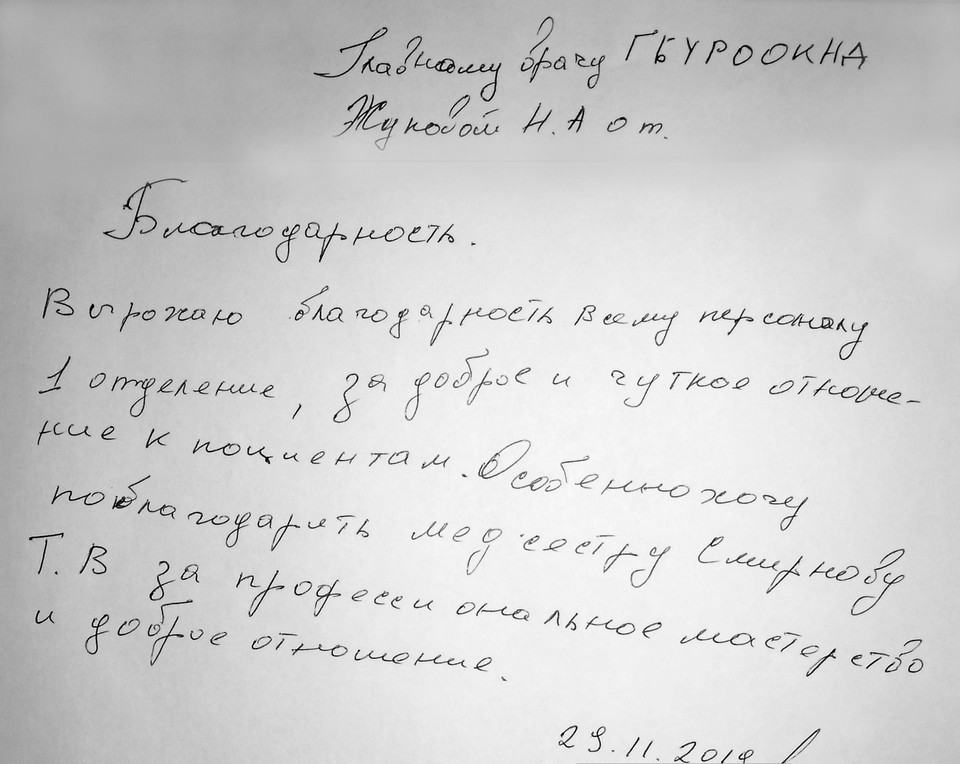 Главному врачу ГБУРООКНД
Жуковой Н.А от.
Благодарность.
Выражаю благодарность всему персоналу
1 отделение, за доброе и чуткое отноше-
ние к поциентам. Особенно хочу
поблагодарить мед.сестру Смирнову
Т.В за профессиональное мастерство
и доброе отношение.
29.11.2019